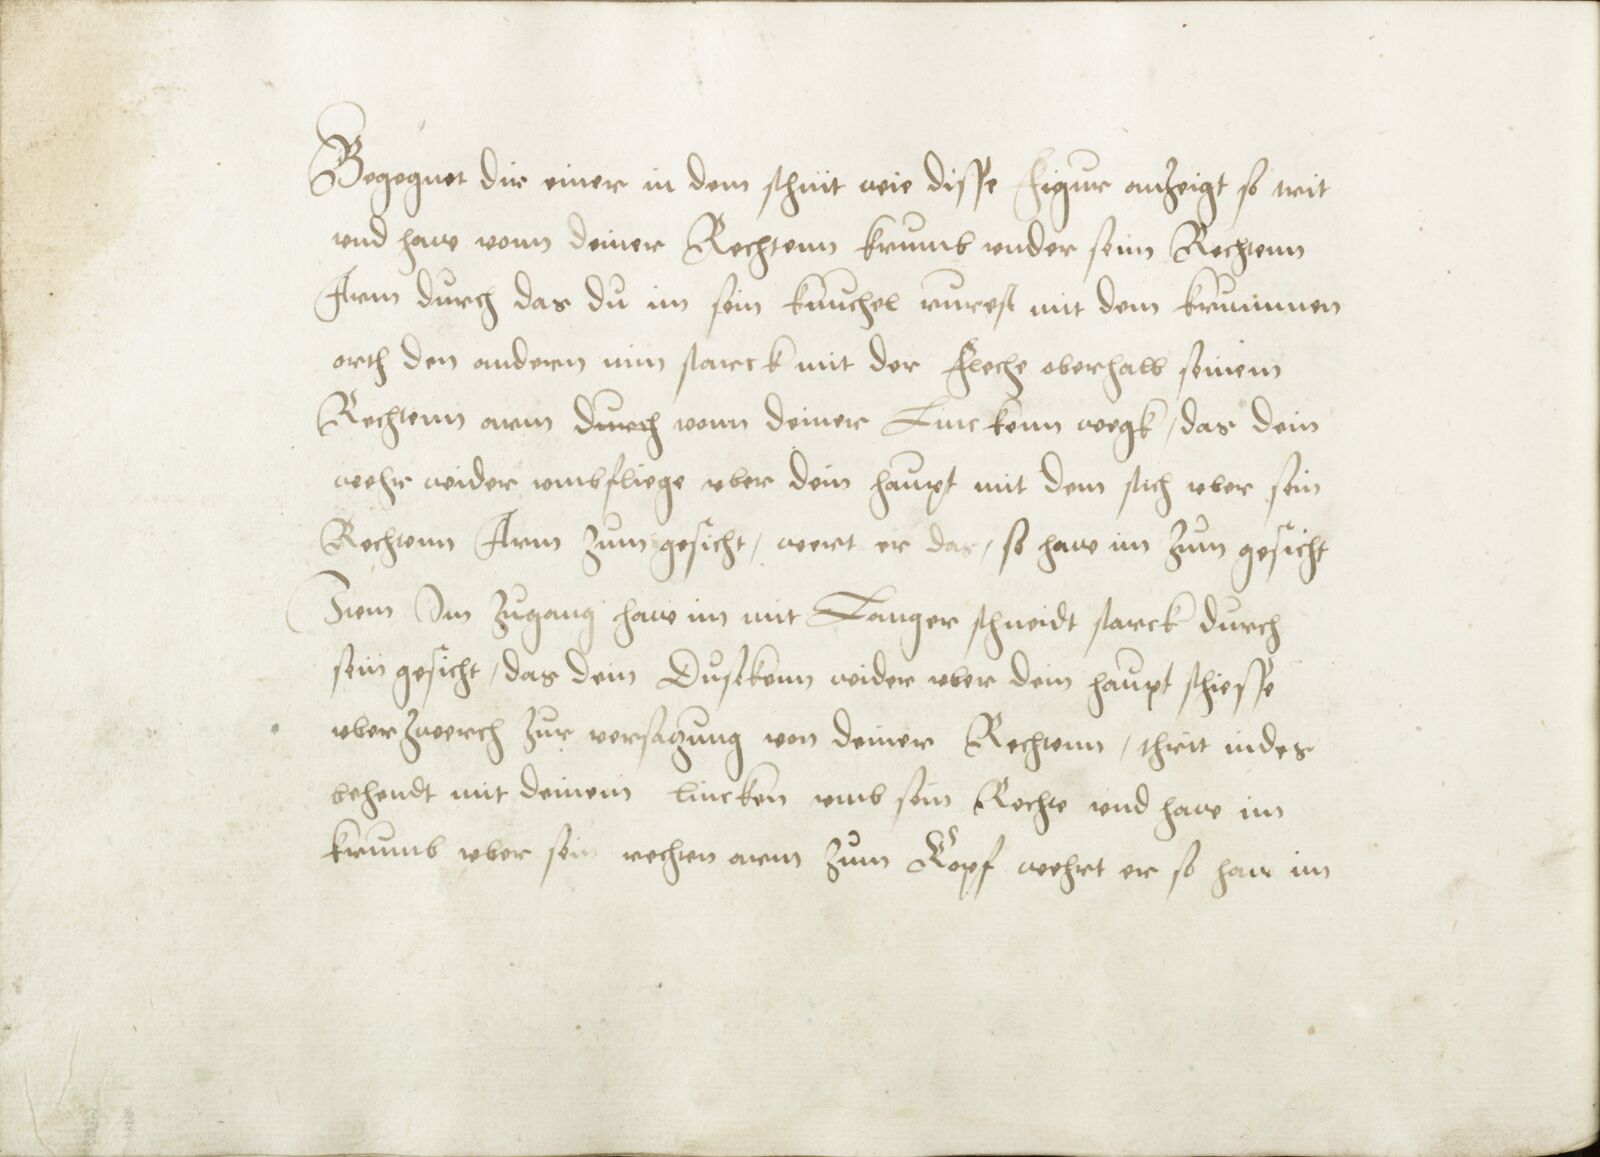 Begegnet dir einer in dem schnit wie disse Figur anzeigt so trit
vnd haw vonn deiner Rechtenn krumb vnder seim Rechtenn
Arm durch das du im sein knuchel rurest mit dem krummen
orth den andern nim starck mit der fleche oberhalb seinem
Rechtenn arm durch vonn deiner Linckenn wegk / das dein
wehr wider vmbfliege vber dein haupt mit dem stich vber sein
Rechtenn Arm zum gesicht / wert er das / so haw im zum gesicht
Item Im zugang haw im mit Langer schneidt starck durch
sein gesicht / das dein Dusekenn wider vber dem haupt schiesse
vberzwerch zur versatzung von deiner Rechtenn / thrit indes
behendt mit deinem lincken vmb sein Rechte vnd haw im
krumb vber sein rechten arm zum Kopf wehrt er so haw im